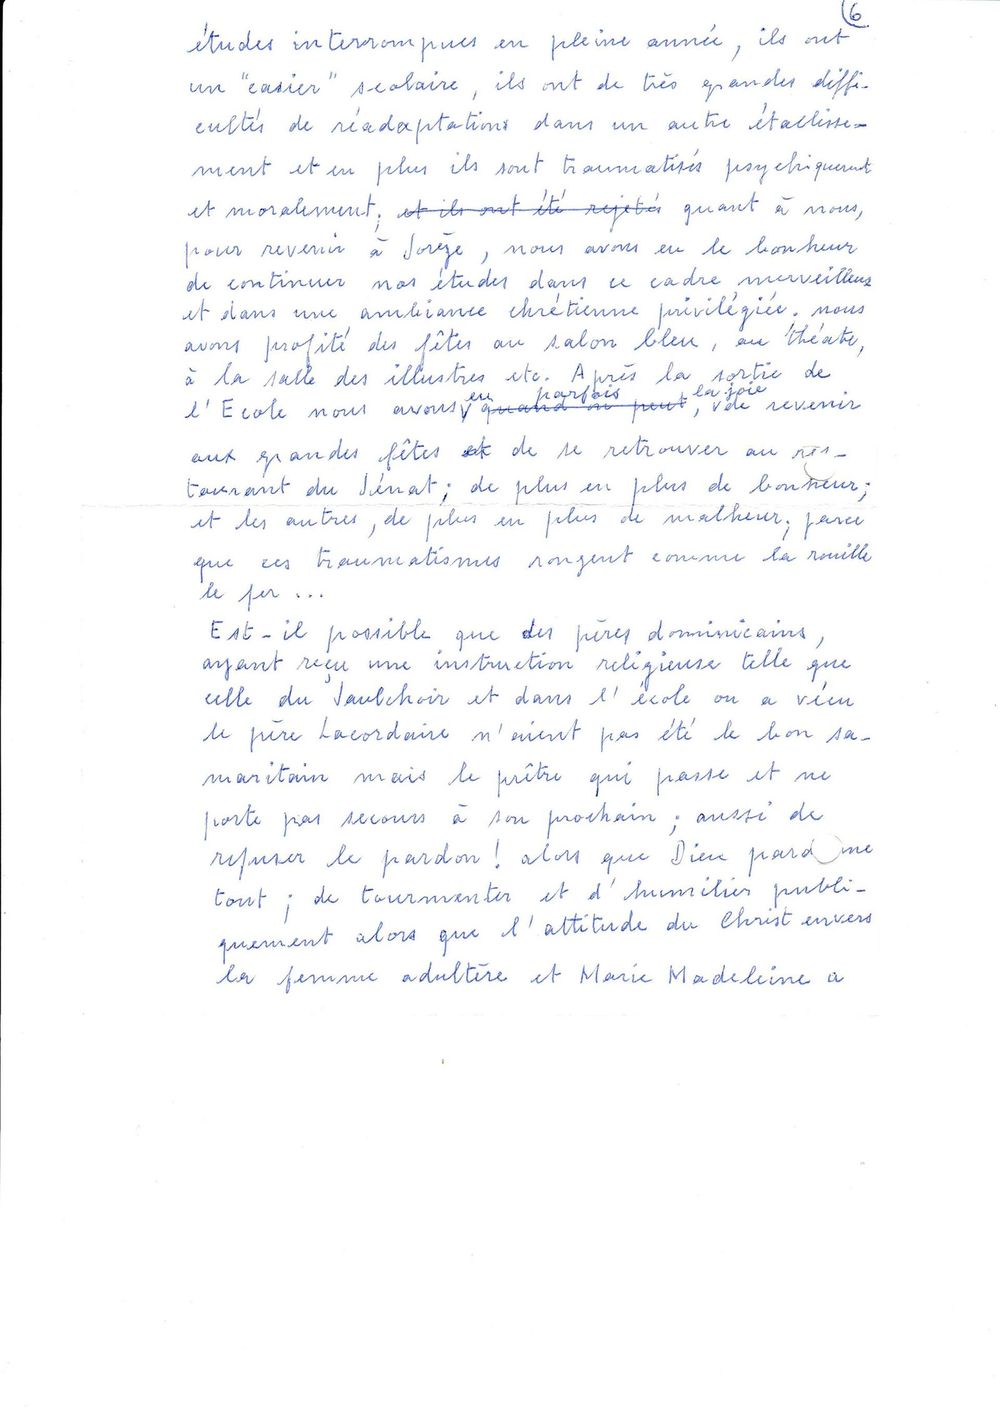 6
études interrompues en pleine année, ils ont
un "casier" scolaire, ils ont de très grandes diffi-
cultés de réadaptations dans un autre établisse-
ment et en plus ils sont traumatisés psychiquement
et moralement; et ils ont été rejetés quant à nous,
pour revenir à Sorèze, nous avons eu le bonheur
de continuer nos études dans ce cadre merveilleux
et dans une ambiance chrétienne privilégiée. nous
avons profité des fêtes au salon bleu, au théatre,
à la salle des illustres etc. Après la sortie de
eu parfois la joie
l'Ecole nous avons quand on peut, de revenir
aux grandes fêtes et de se retrouver au res-
taurant du Sénat; de plus en plus de bonheur;
et les autres, de plus en plus de malheur; parce
que ces traumatismes rongent comme la rouille
le fer ...
Est-il possible que des pères dominicains,
ayant reçu une instruction religieuse telle que
celle du Saulchoir et dans l'école ou a vécu
le père Lacordaire n'aient pas été le bon sa-
maritain mais le prêtre qui passe et ne
porte pas secours à son prochain; aussi de
refuser le pardon! alors que Dieu pardonne
tout; de tourmenter et d'humilier publi-
quement alors que l'attitude du Christ envers
la femme adultère et Marie Madeleine a